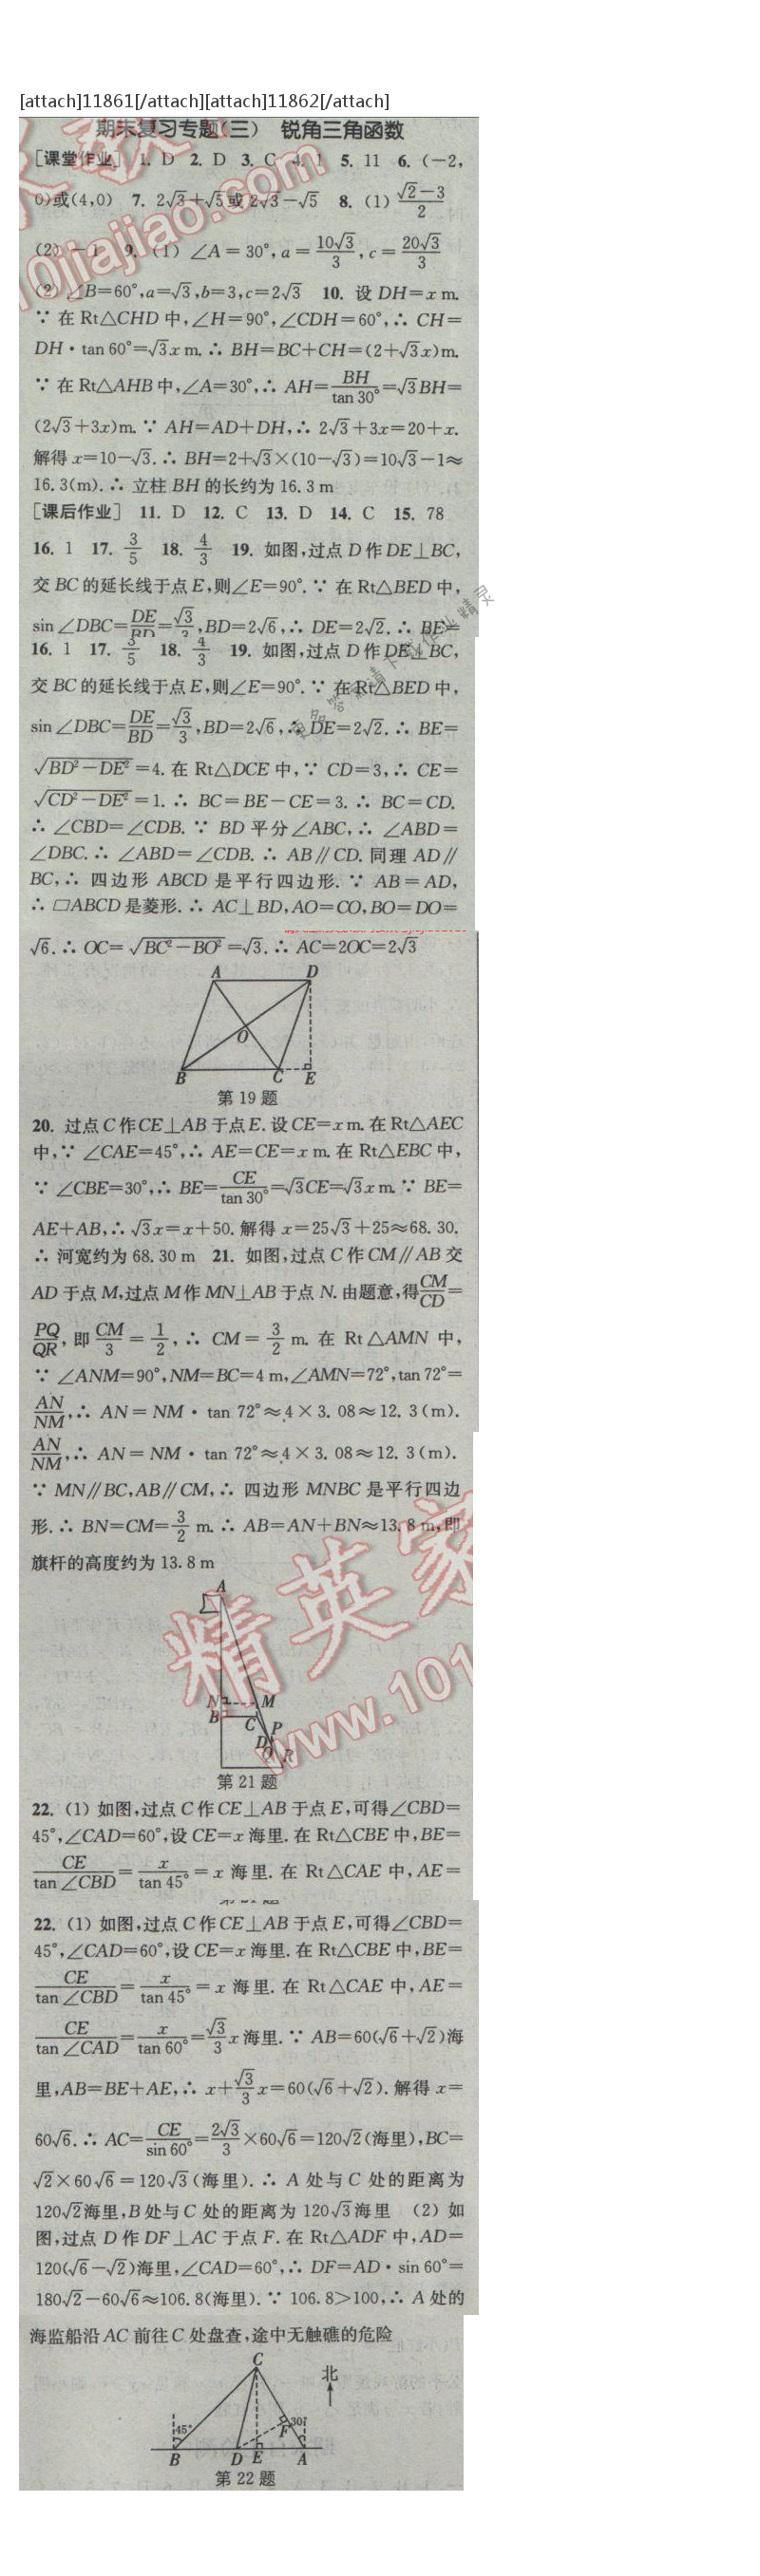 [attach]11861[/attach][attach]11862[/attach]
期末复习专题(三) 锐角三角函数
[课堂作业] 1. D 2. D 3. C 4. 1 5. 11 6. (-2,
0)或(4,0) 7. 2√3+√5或2√3-√5 8. (1) (√2-3)/2
(2) -1 9. (1) ∠A=30°,a=10√3/3,c=20√3/3
(2) ∠B=60°,a=√3,b=3,c=2√3 10. 设DH=x m.
∵ 在Rt△CHD中,∠H=90°,∠CDH=60°,∴ CH=
DH·tan 60°=√3x m.∴ BH=BC+CH=(2+√3x)m.
∵ 在Rt△AHB中,∠A=30°,∴ AH=BH/tan 30°=√3BH=
(2√3+3x)m.∵ AH=AD+DH,∴ 2√3+3x=20+x.
解得x=10-√3.∴ BH=2+√3×(10-√3)=10√3-1≈
16.3(m).∴ 立柱BH的长约为16.3 m
[课后作业] 11. D 12. C 13. D 14. C 15. 78
16. 1 17. 3/5 18. 4/3 19. 如图,过点D作DE⊥BC,
交BC的延长线于点E,则∠E=90°.∵ 在Rt△BED中,
sin∠DBC=DE/BD=√3/3,BD=2√6,∴ DE=2√2.∴ BE=
16. 1 17. 3/5 18. 4/3 19. 如图,过点D作DE⊥BC,
交BC的延长线于点E,则∠E=90°.∵ 在Rt△BED中,
sin∠DBC=DE/BD=√3/3,BD=2√6,∴ DE=2√2.∴ BE=
√(BD²-DE²)=4.在Rt△DCE中,∵ CD=3,∴ CE=
√(CD²-DE²)=1.∴ BC=BE-CE=3.∴ BC=CD.
∴ ∠CBD=∠CDB.∵ BD平分∠ABC,∴ ∠ABD=
∠DBC.∴ ∠ABD=∠CDB.∴ AB∥CD.同理AD∥
BC,∴ 四边形ABCD是平行四边形.∵ AB=AD,
∴ □ABCD是菱形.∴ AC⊥BD,AO=CO,BO=DO=
√6.∴ OC=√(BC²-BO²)=√3.∴ AC=2OC=2√3
A D
O
B C E
第19题
20. 过点C作CE⊥AB于点E.设CE=x m.在Rt△AEC
中,∵ ∠CAE=45°,∴ AE=CE=x m.在Rt△EBC中,
∵ ∠CBE=30°,∴ BE=CE/tan 30°=√3CE=√3x m.∵ BE=
AE+AB,∴ √3x=x+50.解得x=25√3+25≈68.30.
∴ 河宽约为68.30 m 21. 如图,过点C作CM∥AB交
AD于点M,过点M作MN⊥AB于点N.由题意,得CM/CD=
PQ/QR,即CM/3=1/2,∴ CM=3/2 m.在Rt△AMN中,
∵ ∠ANM=90°,NM=BC=4 m,∠AMN=72°,tan 72°=
AN/NM,∴ AN=NM·tan 72°≈4×3.08≈12.3(m).
AN/NM,∴ AN=NM·tan 72°≈4×3.08≈12.3(m).
∵ MN∥BC,AB∥CM,∴ 四边形MNBC是平行四边
形.∴ BN=CM=3/2 m.∴ AB=AN+BN≈13.8 m,即
旗杆的高度约为13.8 m
A
N M
B C P
D Q R
第21题
22. (1) 如图,过点C作CE⊥AB于点E,可得∠CBD=
45°,∠CAD=60°,设CE=x海里.在Rt△CBE中,BE=
CE/tan∠CBD=x/tan 45°=x海里.在Rt△CAE中,AE=
22. (1) 如图,过点C作CE⊥AB于点E,可得∠CBD=
45°,∠CAD=60°,设CE=x海里.在Rt△CBE中,BE=
CE/tan∠CBD=x/tan 45°=x海里.在Rt△CAE中,AE=
CE/tan∠CAD=x/tan 60°=√3/3x海里.∵ AB=60(√6+√2)海
里,AB=BE+AE,∴ x+√3/3x=60(√6+√2).解得x=
60√6.∴ AC=CE/sin 60°=2√3/3×60√6=120√2(海里),BC=
√2×60√6=120√3(海里).∴ A处与C处的距离为
120√2海里,B处与C处的距离为120√3海里 (2) 如
图,过点D作DF⊥AC于点F.在Rt△ADF中,AD=
120(√6-√2)海里,∠CAD=60°,∴ DF=AD·sin 60°=
180√2-60√6≈106.8(海里).∵ 106.8>100,∴ A处的
海监船沿AC前往C处盘查,途中无触礁的危险
C 北
45° F 30°
B D E A
第22题
精英家
www.101
10jiajiao.com